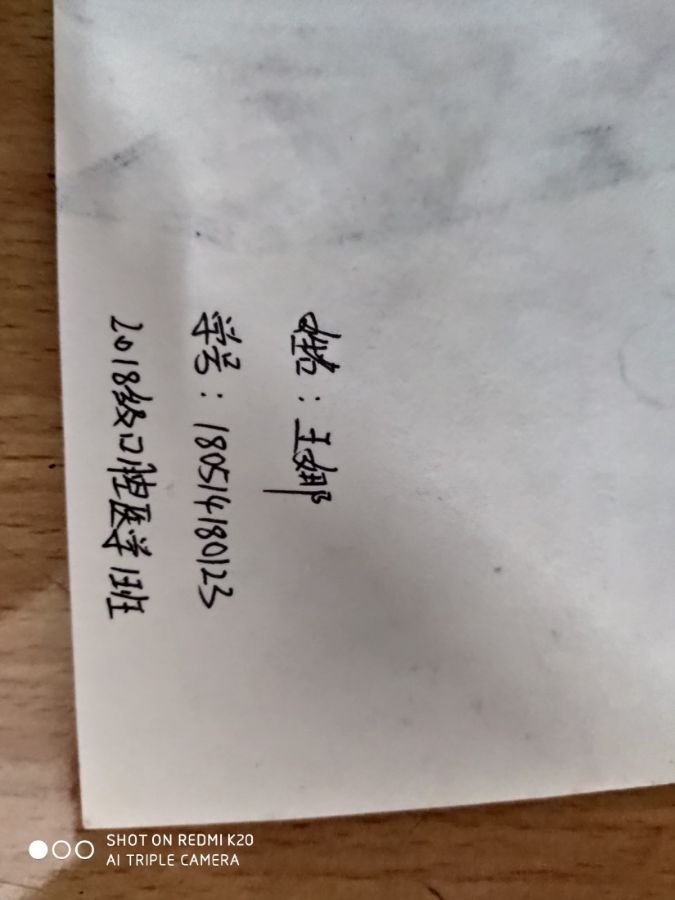 姓名：王娜
学号：180514180123
2018级口腔医学1班
SHOT ON REDMI K20
AI TRIPLE CAMERA